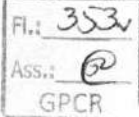 Fl.: 353v
Ass.:
GPCR